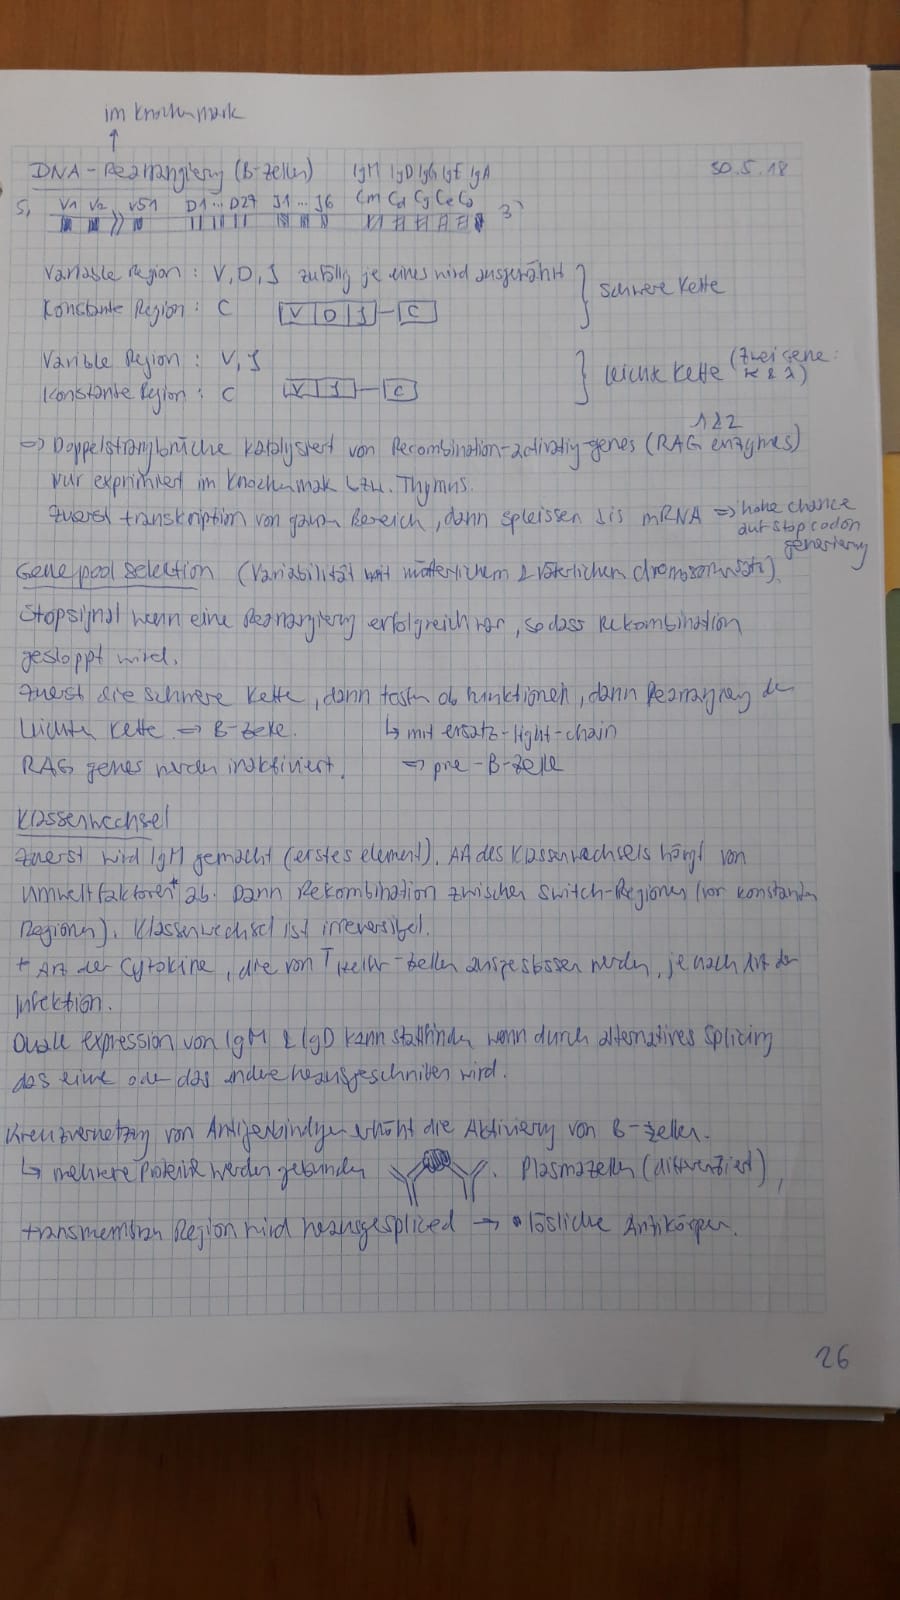 im Knochenmark
DNA-Rearrangierg (B-Zellen) IgM IgD IgG IgE IgA 30.5.18
5' V1 V2 V51 D1...D27 J1...J6 Cm Cd Cg Ce Ca 3'
Variable Region : V, D, J zufällig je eines wird ausgewählt
Konstante Region : C V D J - C
schwere Kette
Varible Region : V, J
Konstante Region : C V J - C
leichte Kette (zwei Gene: κ & λ)
1&2
=> Doppelstrangbrüche katalysiert von Recombination-activatig-genes (RAG enzymes)
nur exprimiert im Knochenmak bzw. Thymus.
Zuerst transkription von ganzen Bereich, dann spleissen bis mRNA => hohe chance
auf stop codon
generierung
Genepool selection (Variabilität mit mütterlichem & väterlichen chromosomensatz)
Stopsignal wenn eine Rearrangierg erfolgreich war, sodass Rekombination
gestoppt wird.
Zuerst die schwere Kette, dann testen ob funktionell, dann Rearrangierg der
leichten Kette => B-Zelle. ↳ mit ersatz-light-chain
RAG genes werden inaktiviert. => pre-B-Zelle
Klassenwechsel
Zuerst wird IgM gemacht (erstes element). Art des Klassenwechsels hängt von
Umweltfaktoren* ab. Dann Rekombination zwischen Switch-Regionen (vor konstanten
Regionen). Klassenwechsel ist irreversibel.
* Art der Cytokine, die von T Helfer-Zellen ausgestossen werden, je nach Art der
Infektion.
Duale expression von IgM & IgD kann stattfinden wenn durch alternatives splicing
das eine oder das andere herausgeschnitten wird.
Kreuzvernetzg von Antigenbindgen erhöht die Aktivierung von B-Zellen.
↳ mehrere Proteine werden gebunden . Plasmazellen (differenziert),
transmembran Region wird herausgespliced → lösliche Antikörper.
26